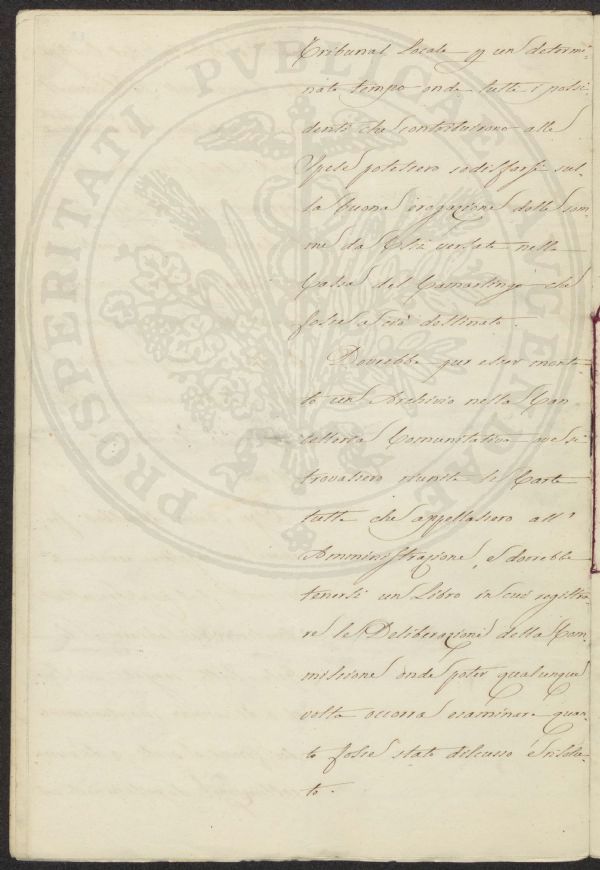 Tribunal Locale p un determi-
nato tempo onde tutti i possi-
denti che contribuirono alle
Spese potessero sodisfarsi sul-
la buona erogazione delle som-
me da Essi versate nella
Cassa del Camarlingo che
fosse a ciò destinato.
Dovrebbe quì esser monta-
to un Archivio nella Can-
celleria Comunitativa ove si
trovassero riunite le Carte
tutte che appellassero all'
Amministrazione, e dovrebbe
tenersi un Libro in cui registra-
re le Deliberazioni della Com-
missione onde poter qualunque
volta occorra esaminare quan-
to fosse stato discusso e risolu-
to.
PROSPERITATI PVBLICAE AVGENDAE